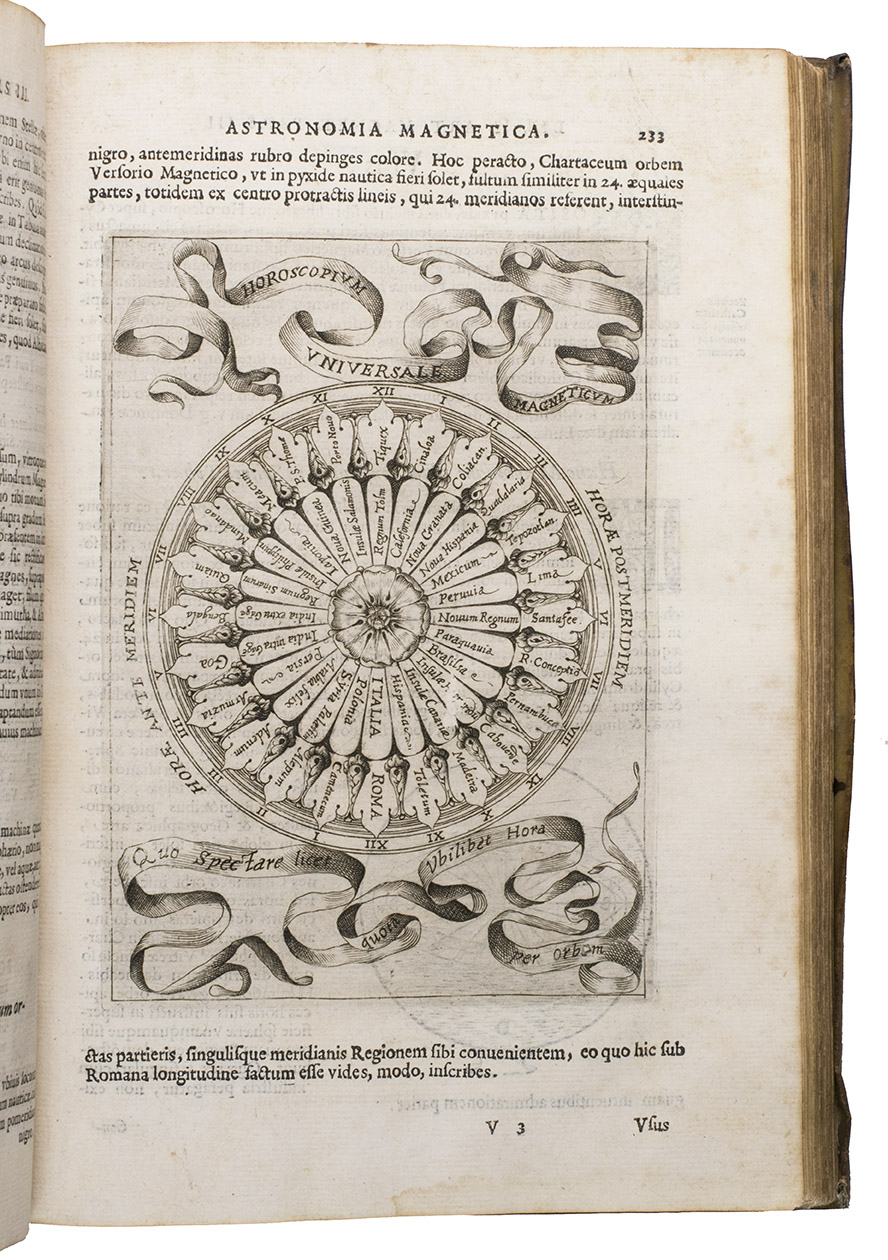 ASTRONOMIA MAGNETICA. 233
nigro, antemeridinas rubro depinges colore. Hoc peracto, Chartaceum orbem
Verſorio Magnetico, vt in pyxide nautica fieri ſolet, fultum ſimiliter in 24. æquales
partes, totidem ex centro protractis lineis, qui 24. meridianos referent, interſtin-
HOROSCOPIVM
VNIVERSALE
MAGNETICVM
HORÆ ANTE MERIDIEM
HORÆ POSTMERIDIEM
XII
I
II
III
IIII
V
VI
VII
VIII
IX
X
XI
XII
I
II
III
IIII
V
VI
VII
VIII
IX
X
XI
Tiquex
Cinaloa
Coliacan
Tepozotlan
Lima
Santafee
R. Conceptio
Madeira
Toletum
ROMA
Alepum
Adenum
Armuzia
Goa
Bengala
Quiam
Mandanao
Meacum
P. S. Thome
Porto Nouo
Regnum Tolm
California
Noua Granata
Noua Hispania
Mexicum
Peruuia
Nouum Regnum
Paraquauia
Brasilia
Insulæ
Insulæ Canariæ
Hispania
ITALIA
Polonia
Arabia felix
Persia
India intra Gãge
India extra Gãge
Regnum Sinarum
Iaponia
Noua Guinea
Insulæ Salamonis
Quo Spectare licet
quota
Vbilibet Hora
Per Orbem
ctas partieris, ſinguliſque meridianis Regionem ſibi conuenientem, eo quo hic ſub
Romana longitudine factum eſſe vides, modo, inſcribes.
V 3 Vſus